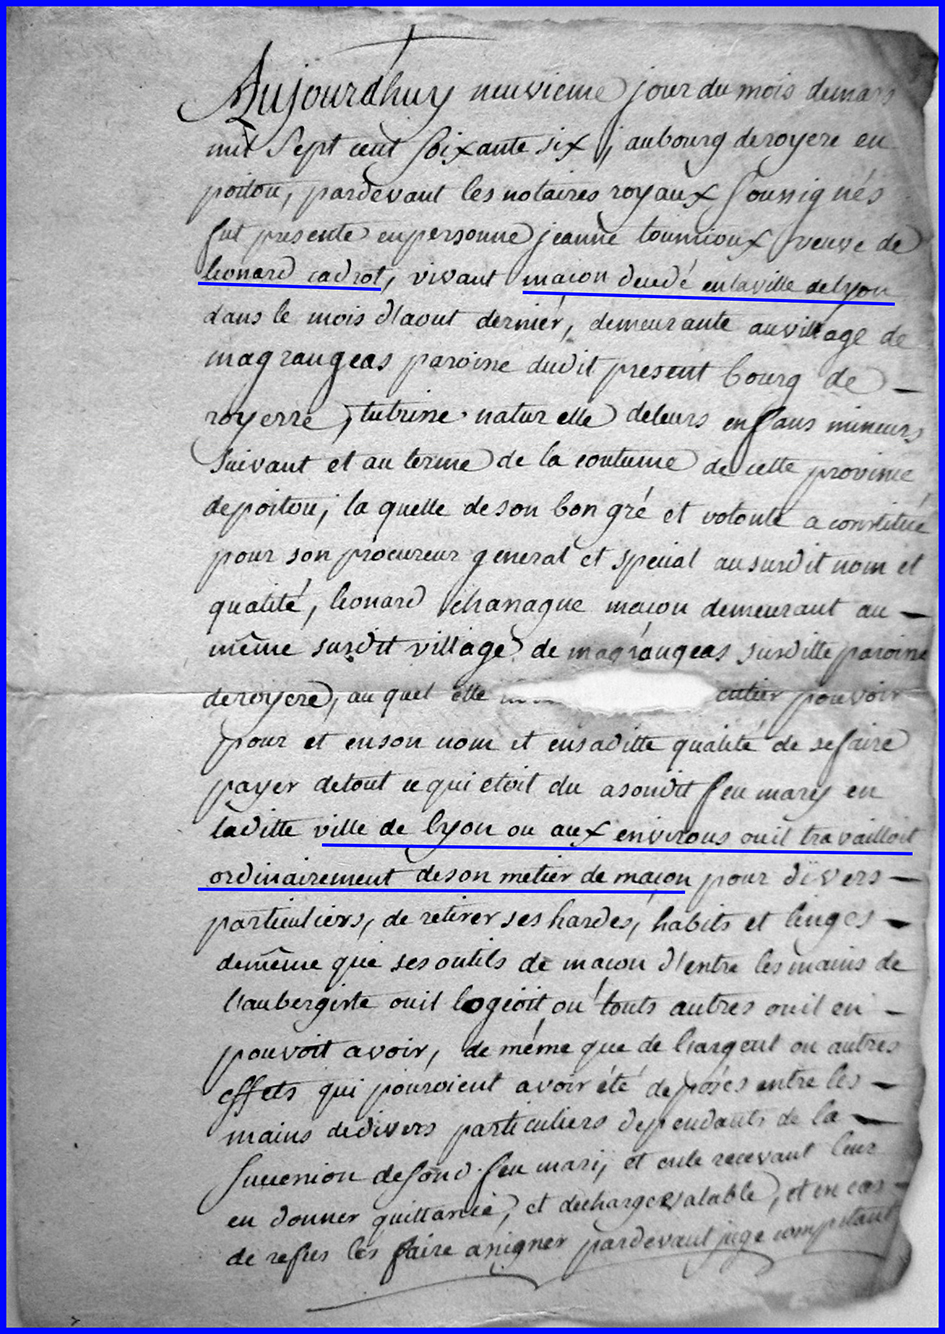 Aujourdhuy neuvieme jour du mois de mars
mil sept cent soixante six, au bourg de royere en
poitou, pardevant les notaires royaux soussignés
fut presente en personne jeanne toumioux veuve de
leonard cadrot, vivant maçon decedé en la ville de lyon
dans le mois d'aout dernier, demeurante au village de
magrangeas paroisse dudit present bourg de
royerre, tutrisse naturelle de leurs enfans mineurs
suivant et au terme de la coutume de cette province
de poitou, la quelle de son bon gré et volonté a constitué
pour son procureur general et special au surdit nom et
qualité, leonard chanagne maçon demeurant au
même surdit village de magrangeas surditte paroisse
de royere, au quel elle culier pouvoir
pour et en son nom et en saditte qualité de se faire
payer de tout ce qui etoit du a sondit feu mary en
laditte ville de lyon ou aux environs ou il travailloit
ordinairement de son metier de maçon pour divers
particuliers, de retirer ses hardes, habits et linges
de même que ses outils de maçon d'entre les mains de
l'aubergiste ou il logeoit ou touts autres ou il en
pouvoit avoir, de même que de l'argent ou autres
effets qui pouroient avoir été deposés entre les
mains de divers particuliers dependants de la
succession de sond. feu mary, et en le recevant leur
en donner quittance, et decharge valable, et en cas
de refus les faire assigner pardevant juge competant